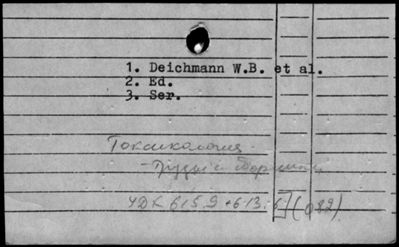 1. Deichmann W.B. et al.
2. Ed.
3. Ser.
Токсикология -
- Труды и сборники
УДК 615.9+613.6](082)